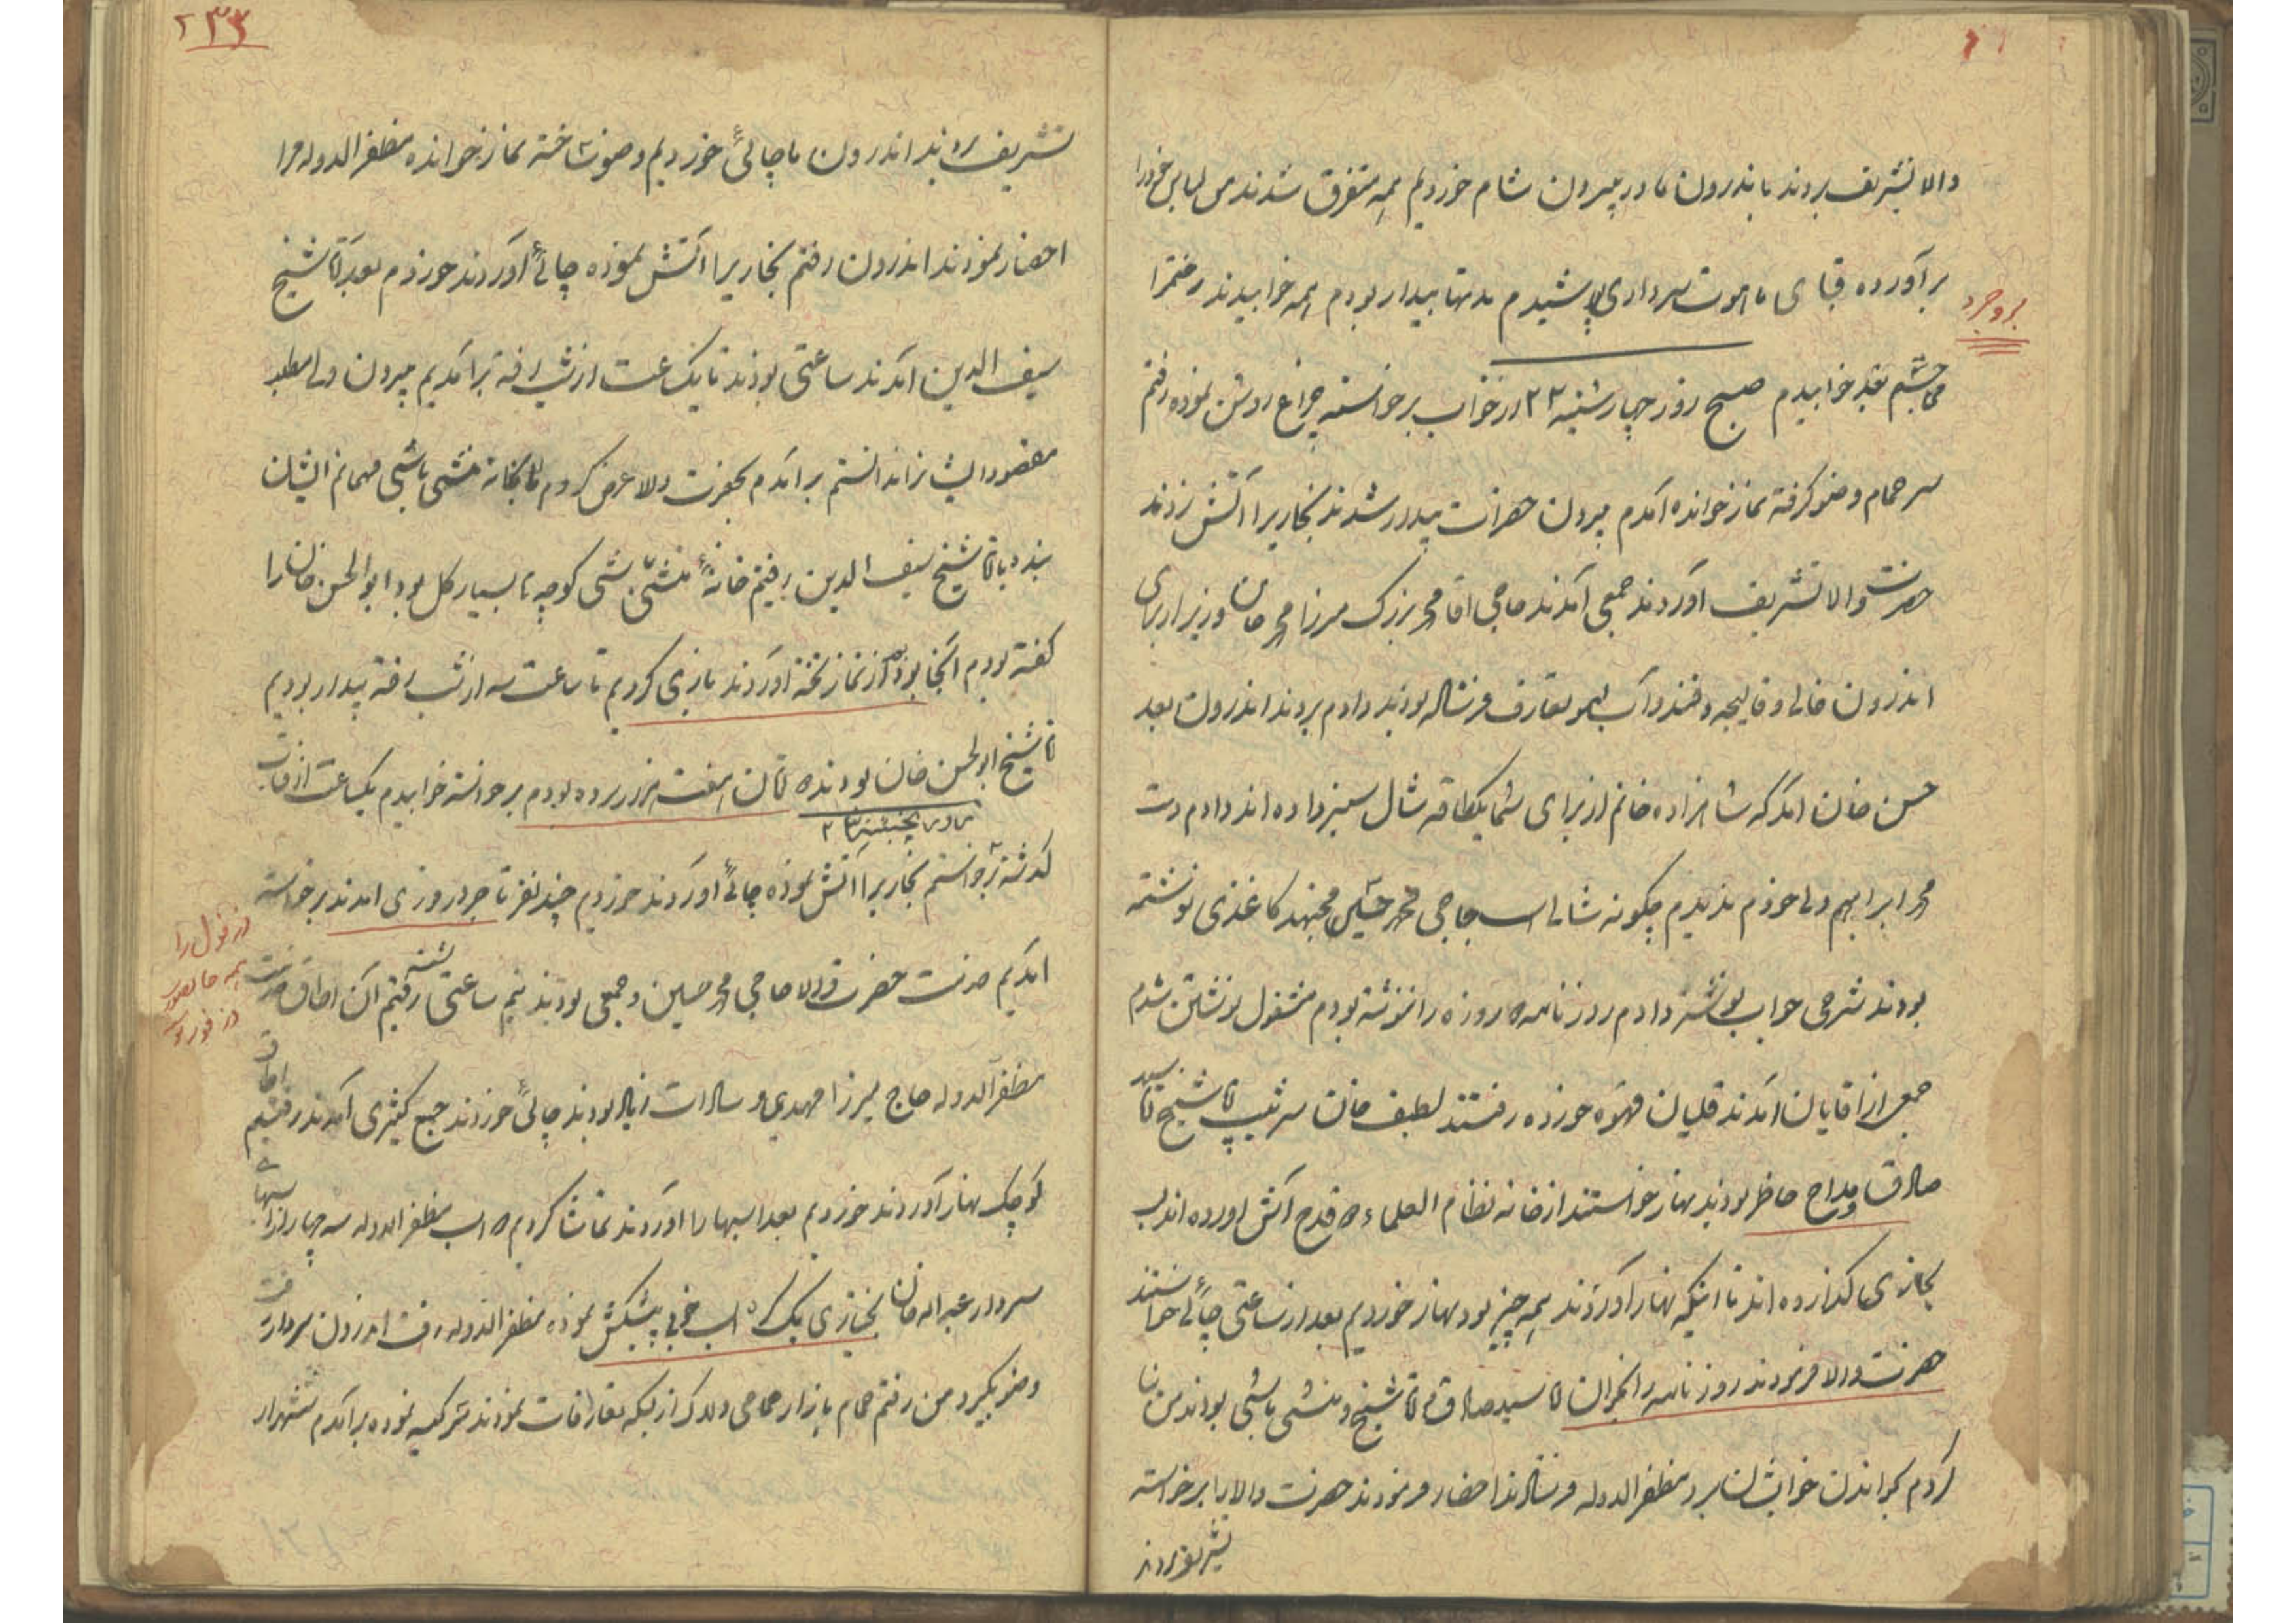 والا تشریف بردند باندرون ما در بیرون شام خوردیم همه متفرق شدند من لباس خود را
بروجرد
برآورده قبای ماهوت سرداری پوشیدم مدتها بیدار بودم همه خوابیدند رختم را
بعد خوابیدم صبح روز چهارشنبه ۲۲ از خواب برخواسته چراغ روشن نموده رفتم
سر حمام وضو گرفته نماز خوانده آمدم بیرون حضرات بیدار شدند بخاریرا آتش زدند
حضرت والا تشریف آوردند جمعی آمدند حاجی آقا محمد بزرک میرزا محمد خان وزیر از برای
اندرون قالی و قالیچه و قند و آب لیمو تعارف فرستاده بودند دادم بردند اندرون بعد
حسن خان آمد که شاهزاده خانم از برای شما یکطاقه شال سبز داده اند دادم دست
محمد ابراهیم ولی خودم ندیدم چگونه شالی است حاجی محمد حسین مجتهد کاغذی نوشته
بودند شرحی جواب نوشته دادم روزنامه ۵ روزه را ننوشته بودم مشغول نوشتن شدم
جمعی از آقایان آمدند قلیان قهوه خورده رفتند لطیف خان سرتیپ آقا شیخ آقا سید
صادق و مداح حاظر بودند نهار خواستند از خانه نظام العلماء ۵ قدح آش آورده اند لب
بخاری گذارده اند تا اینکه نهار آوردند همه چیز بود نهار خوردیم بعد از ساعتی چائی خواستند
حضرت والا فرمودند روزنامه را بخوان آقا سید صادق آقا شیخ و منشی باشی بودند من بنا
کردم بخواندن خوابشان برد مظفرالدوله فرستادند احضار فرمودند حضرت والا را برخواسته
تشریف بردند
۲۳۳
تشریف بردند اندرون ما چائی خوردیم وضو ساخته نماز خوانده مظفرالدوله مرا
احضار نمودند اندرون رفتم بخاریرا آتش نموده چائی آوردند خوردم بعد آقا شیخ
سیف الدین آمدند ساعتی بودند تا یک ساعت از شب رفته برآمدیم بیرون ولی مطلب
مقصود ایشانرا ندانستم برآمدم بحضرت والا عرض کردم آقا بخانه منشی باشی مهمانم ایشان
بنده با آقا شیخ سیف الدین رفتیم خانهٔ منشی باشی کوچه ها بسیار گل بود ابوالحسن خان را
گفته بودم آنجا بود تخته آوردند بازی کردیم تا ساعت سه از شب رفته بیدار بودیم
آقا شیخ ابوالحسن خان بودند ۵ تومان برده بودم برخواسته خوابیدم یکساعت از آفتاب
روز پنجشنبه ۲۳
گذشته برخواستم بخاریرا آتش نموده چائی آوردند خوردیم چند نفر تاجر دزفولی آمدند برخواسته
آمدیم خدمت حضرت والا حاجی محمد حسین و جمعی بودند نیم ساعتی نشسته رفتیم آن اطاق خدمت
مظفرالدوله حاج میرزا مهدی و سادات زیاد بودند چائی خوردند جمع کثیری آمدند رفتیم اطاق
کوچک نهار آوردند خوردیم بعد اسبها را آوردند تماشا کردیم ۵ اسب مظفرالدوله سه چهار از اسبهای
سردار عبداله خان بختیاری یک کره اسب خوبی پیشکش نموده مظفرالدوله رفت اندرون سردار رفت
وضو بگیرد من رفتم حمام بازار حمامی و دلاک از بسکه تعارفات نمودند سرکیسه نموده برآمدم